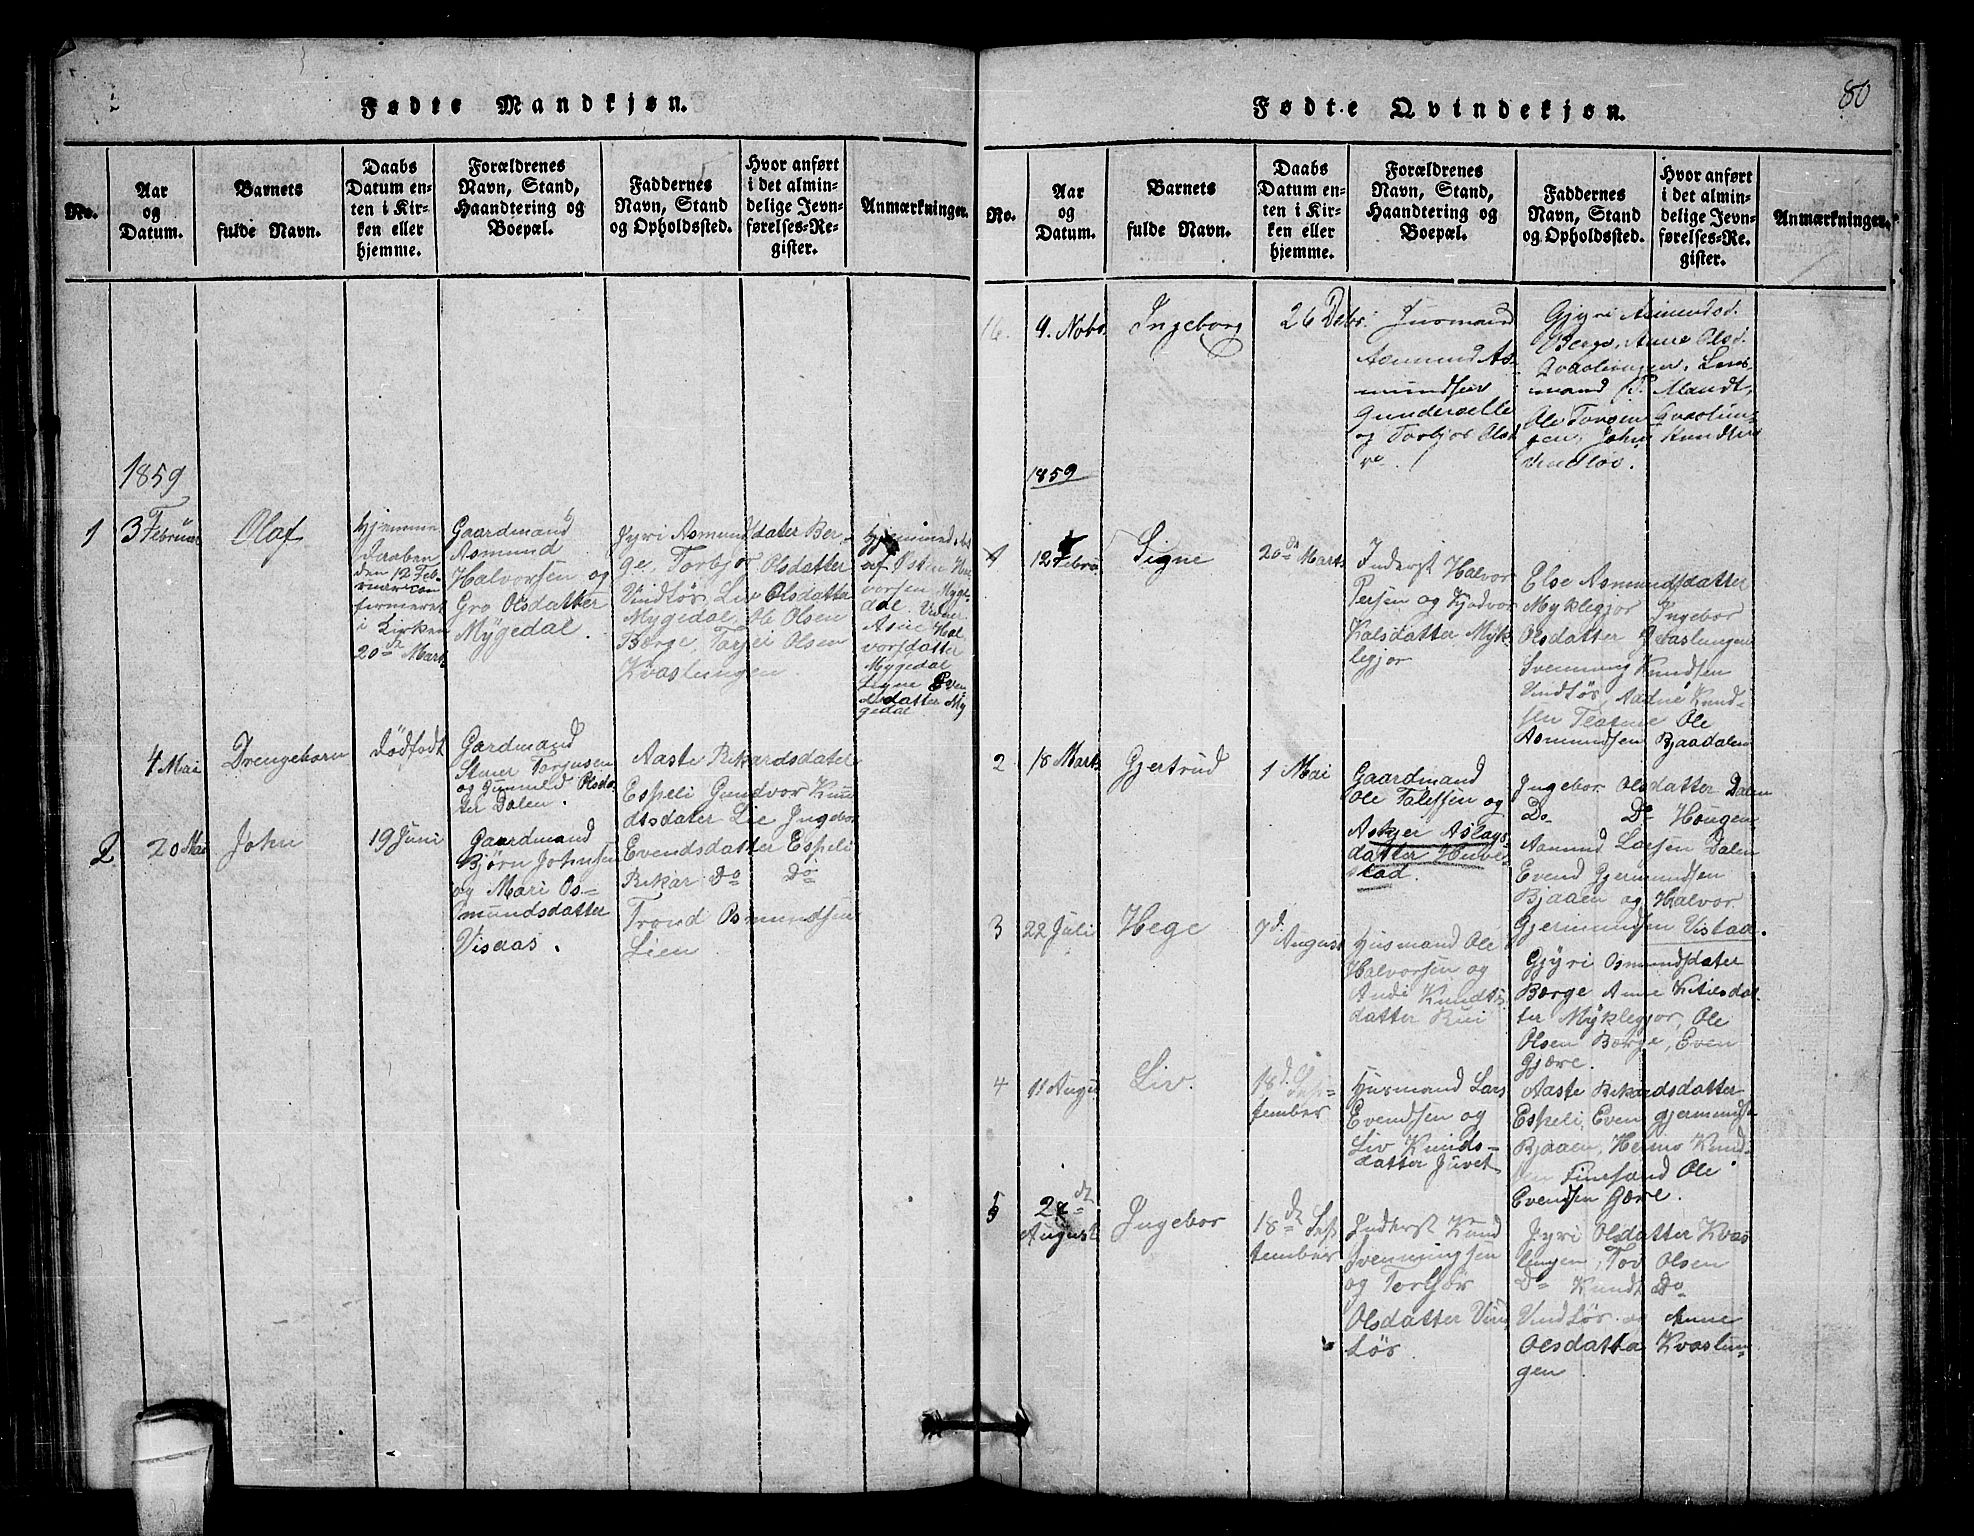 Fødte Mandkjøn.
No.
Aar
og
Datum.
Barnets
fulde Navn.
Daabs
Datum en-
ten i Kir-
ken eller
hjemme.
Forældrenes
Navn, Stand,
Haandtering og
Boepæl.
Faddernes
Navn, Stand
og Opholdssted.
Hvor anført
i det almin-
delige Jevn-
førelses-Re-
gister.
Anmærkninger.
1859
1
3 Februar
Olaf
Hjemme
Daaben
den 12 Feb-
ruar con
firmeret
i Kirken
20de Marts
Gaardmand
Asmund
Halvorsen og
Gro Olsdatter
Mygedal.
Jyri Asmundsdater Bør-
ge, Torbjor Olsdatter
Vindlös, Liv Olsdatter
Mygedal, Ole Olsen
Børge, Tarjei Olsen
Kvaslungen
af Østen Hal
vorsen Myge-
dal
Asne Hal
vorsdatter
Mygedal
Signe Even
datter My
gedal
4 Mai
Drengebarn
Dödfödt
Gardmand
Torjusen
og Gunnild Olsda
ter Dalen.
2
20 Mai
John
19 Juni
Gaardmand
Bjørn Johnsen
og Mari Os-
mundsdatter
Visaas.
Aaste Rikardsdater
Espeli Gundvor Knu
dtsdater Lie Ingebor
Evendsdatter Espeli
Rikar Do Do
Trond Osmundsen
Lien
Fødte Qvindekjøn.
80
No.
Aar
og
Datum.
Barnets
fulde Navn.
Daabs
Datum en-
ten i Kir-
ken eller
hjemme.
Forældrenes
Navn, Stand,
Haandtering og
Boepæl.
Faddernes
Navn, Stand
og Opholdssted.
Hvor anført
i det almin-
delige Jevn-
førelses-Re-
gister.
Anmærkninger.
16.
9. Nobr.
Ingeborg
26 Debr.
Jusmand
Asmund As-
mundsen
og Torbjor Olsd.
Gjyri Asmundsd.
Berge, Anne Olsd.
Qvaslungen, Lens-
mand P. Mandt,
Ole Torgen Qvaslun-
gen, John Knudsen
Vindlös.
1859
1
12 Febru
Signe
20de Marts
Inderst Halvor
Persen og Gjødvor
Kalsdatter Myk
legjor
Else Asmundsdatter
Myklegjor Ingebor
Olsdatter Qvaslungen
Svenning Knudsen
Vindlös, Aadne Knud-
sen Ole
Asmundsen Bjaadalen
2
18 Marts
Gjertrud
1 Mai
Gaardmand
Ole Taletsen og
Askjer Aslags
datter Huve-
stad.
Ingebor Olsdatter Dalen
Do. Do Hougen
Asmund Larsen Dalen
Evend Gjermundsen
Bjaaen og Halvor
Gjermundsen Vistad.
3
22 Juli
Hege
7d.
August
Husmand Ole
Halvorsen og
Andi Knudts
datter Rui
Gjyri Osmundsdater
Børge Anne Ketilsdat
ter Myklegjor, Ole
Olsen Børge, Even
Gjære.
4
11 August
Liv.
18d. Sep-
tember
Husmand Lars
Evendsen og
Liv Knuds-
datter Juvet
Aaste Rikardsdatter
Espeli, Even Gjermunds
Bjaaen, Knud-
sen Finesand Ole
Evendsen Gære.
5
28de
August
Ingebor
18de Sep
tember
Inderst Knud
Svenningsen
og Torbjör
Olsdatter Vin
lös
Jyri Olsdatter Kvas
lungen, Tov Olsen
Do Knudt Do
Vindlös og Anne
Olsdatta Kvaslun-
gen